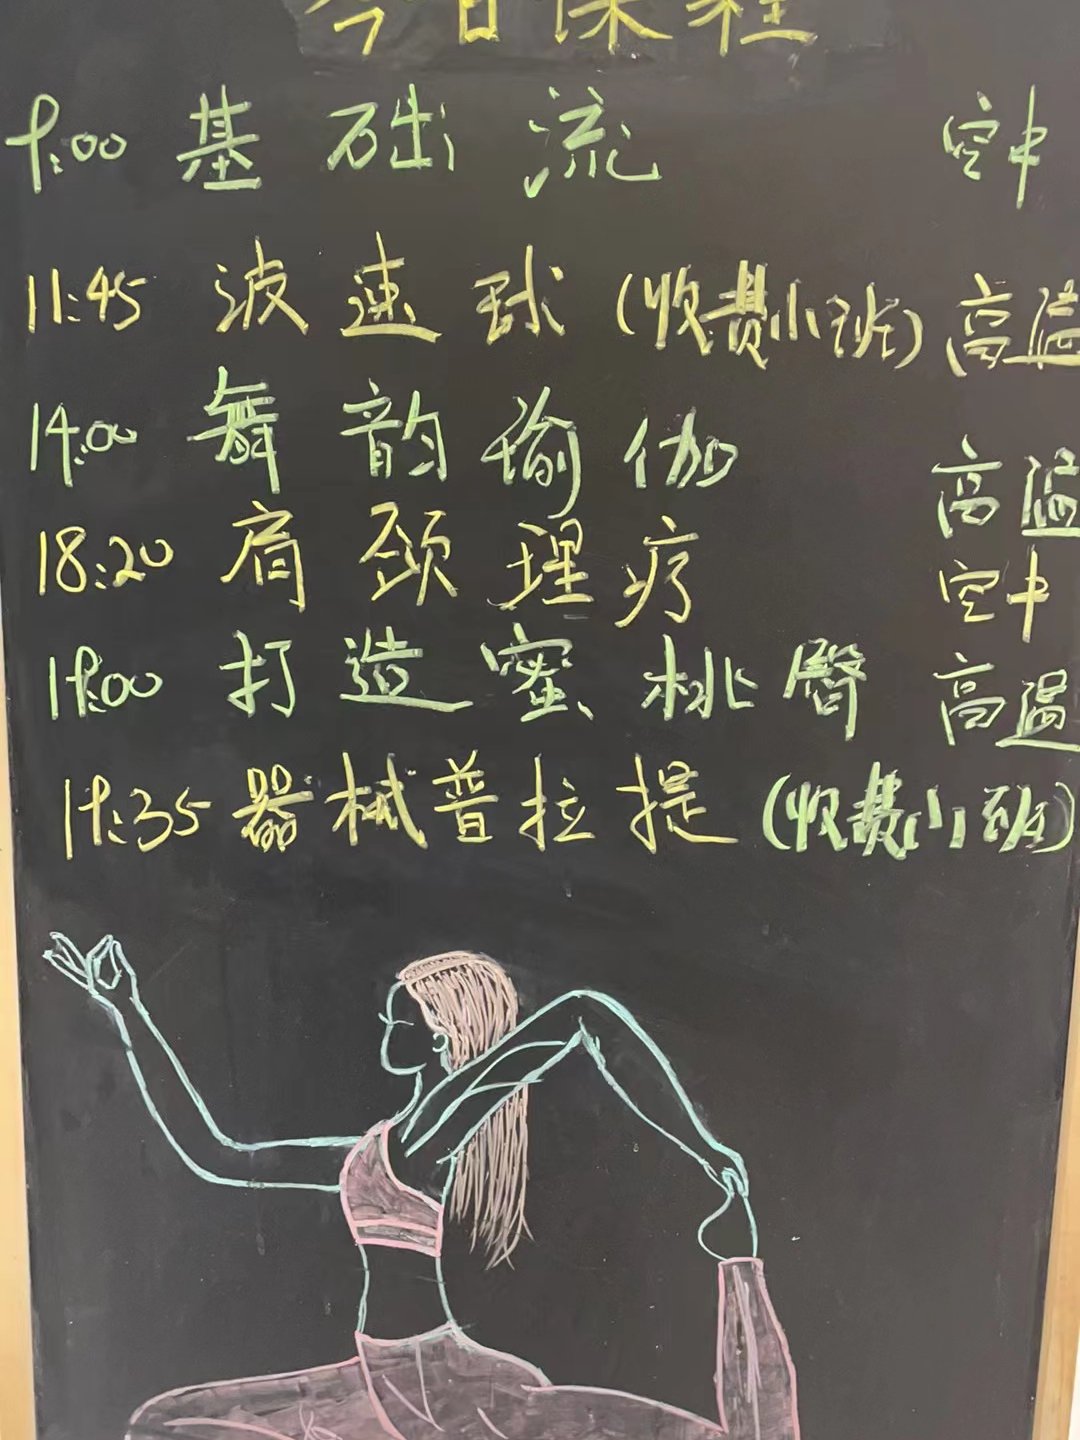 今日课程
9:00 基础流 空中
11:45 波速球(收费小班) 高温
14:00 舞韵瑜伽 高温
18:20 肩颈理疗 空中
19:00 打造蜜桃臀 高温
19:35 器械普拉提(收费小班)